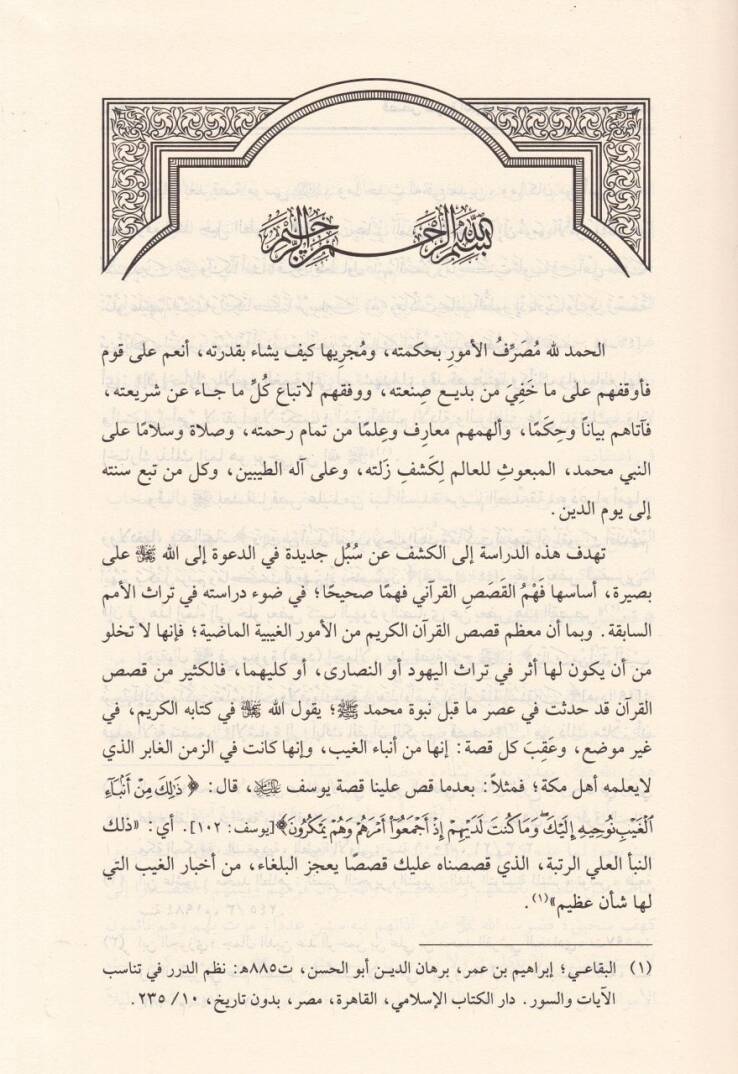 بسم الله الرحمن الرحيم
الحمد لله مُصَرِّفُ الأمورِ بحكمته، ومُجرِيها كيف يشاء بقدرته، أنعم على قوم
فأوقفهم على ما خَفِيَ من بديـع صِنعته، ووفقهم لاتباع كُلِّ ما جـاء عن شريعته،
فآتاهم بياناً وحِكَمًا، وألهمهم معارِف وعِلمًا من تمام رحمته، وصلاة وسلامًا على
النبي محمد، المبعوثِ للعالم لِكَشفِ زَلته، وعلى آله الطيبين، وكل من تبع سنته
إلى يوم الدين.
تهدف هذه الدراسة إلى الكشف عن سُبُل جديدة في الدعوة إلى الله ﷻ على
بصيرة، أساسها فَهْمُ القَصَصِ القرآني فهمًا صحيحًا؛ في ضوء دراسته في تراث الأمم
السابقة. وبما أن معظم قصص القرآن الكريم من الأمور الغيبية الماضية؛ فإنها لا تخلو
من أن يكون لها أثر في تراث اليهود أو النصارى، أو كليهما، فالكثير من قصص
القرآن قد حدثت في عصر ما قبل نبوة محمد ﷺ؛ يقول الله ﷻ في كتابه الكريم، في
غير موضع، وعَقِبَ كل قصة: إنها من أنباء الغيب، وإنها كانت في الزمن الغابر الذي
لايعلمه أهل مكة؛ فمثلاً: بعدما قص علينا قصة يوسف عليه السلام، قال: ﴿ذَٰلِكَ مِنْ أَنۢبَآءِ
ٱلْغَيْبِ نُوحِيهِ إِلَيْكَ ۖ وَمَا كُنتَ لَدَيْهِمْ إِذْ أَجْمَعُوٓا۟ أَمْرَهُمْ وَهُمْ يَمْكُرُونَ﴾[يوسف: ١٠٢]. أي: «ذلك
النبأ العلي الرتبة، الذي قصصناه عليك قصصًا يعجز البلغاء، من أخبار الغيب التي
لها شأن عظيم»(١).
(١) البقاعـي؛ إبراهيم بن عمر، برهان الديـن أبو الحسن، ت٨٨٥هـ: نظم الدرر في تناسب
الآيات والسور. دار الكتاب الإسلامي، القاهرة، مصر، بدون تاريخ، ١٠/ ٢٣٥.